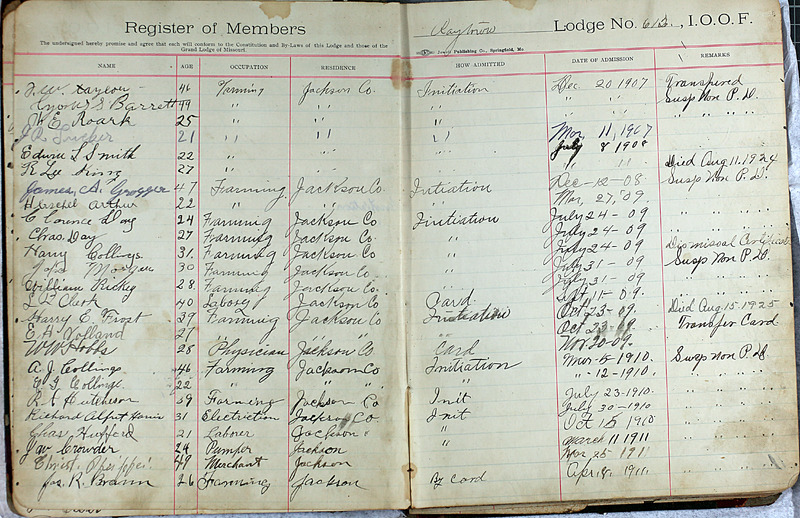 Register of Members
The undersigned hereby promise and agree that each will conform to the Constitution and By-Laws of this Lodge and those of the
Grand Lodge of Missouri.
Raytown Lodge No. 613., I. O. O. F.
Publishing Co., Springfield, Mo.
NAME AGE OCCUPATION RESIDENCE HOW ADMITTED DATE OF ADMISSION REMARKS
46 Farming Jackson Co. Initiation Dec. 20 1907 Transfered
S Barrett 49 " " " " Susp Non P. D.
W E Roark 25 " " " " " "
J R Tucker 21 " " " " Mar, 11, 1907
Edwin L Smith 22 " " July 8 1908
R Lee King 27 " " " 11 Died Aug. 11. 1924
James, A. Grogger 47 Farming Jackson Co Initiation Dec-12-08. Susp Non P. D.
Herschel Arthur 22 " " Mar, 27, 09.
Clarence Day 24 Farming Jackson Co. Initiation July 24 - 09
Chas. Day 27 Farming Jackson Co. " July 24 - 09
Harry Collings 31. Farming Jackson Co. " July 24 - 09 Dismissal Certificate
Morgan 30 Farming Jackson Co. " July 31 - 09 Susp Non P. D.
William Richey 28. Farming Jackson Co. " July 31 - 09.
Clark 40 Laborer Jackson Co Card Sept, 11 - 09.
Harry E. Frost 39 Farming Jackson Co. Initiation Oct 23 - 09. Died Aug. 15. 1925
E A Volland 27 " Oct 23 - 09 Transfer Card
W W Hobbs 28 Physician Jackson Co Card Nov. 20-09.
A. J. Collings 46 Farming Jackson Co Initiation Mar-5-1910. Susp Non P. D.
Collings. 22 " " " " " -12-1910.
Hutcheson 59 Farming Jackson Co Init July 23-1910.
Richard Alfred 31 Electrician Jackson Co. Init July 30-1910
Chas. Hufferd 21 Laborer Jackson " Oct 15 1910
J W Crowder 24 Pumper Jackson " March 11 1911
Ernest 49 Merchant Jackson Mar 25 1911
Jas. R. Brann 26 Farming Jackson By Card Apr. 8. 1911.